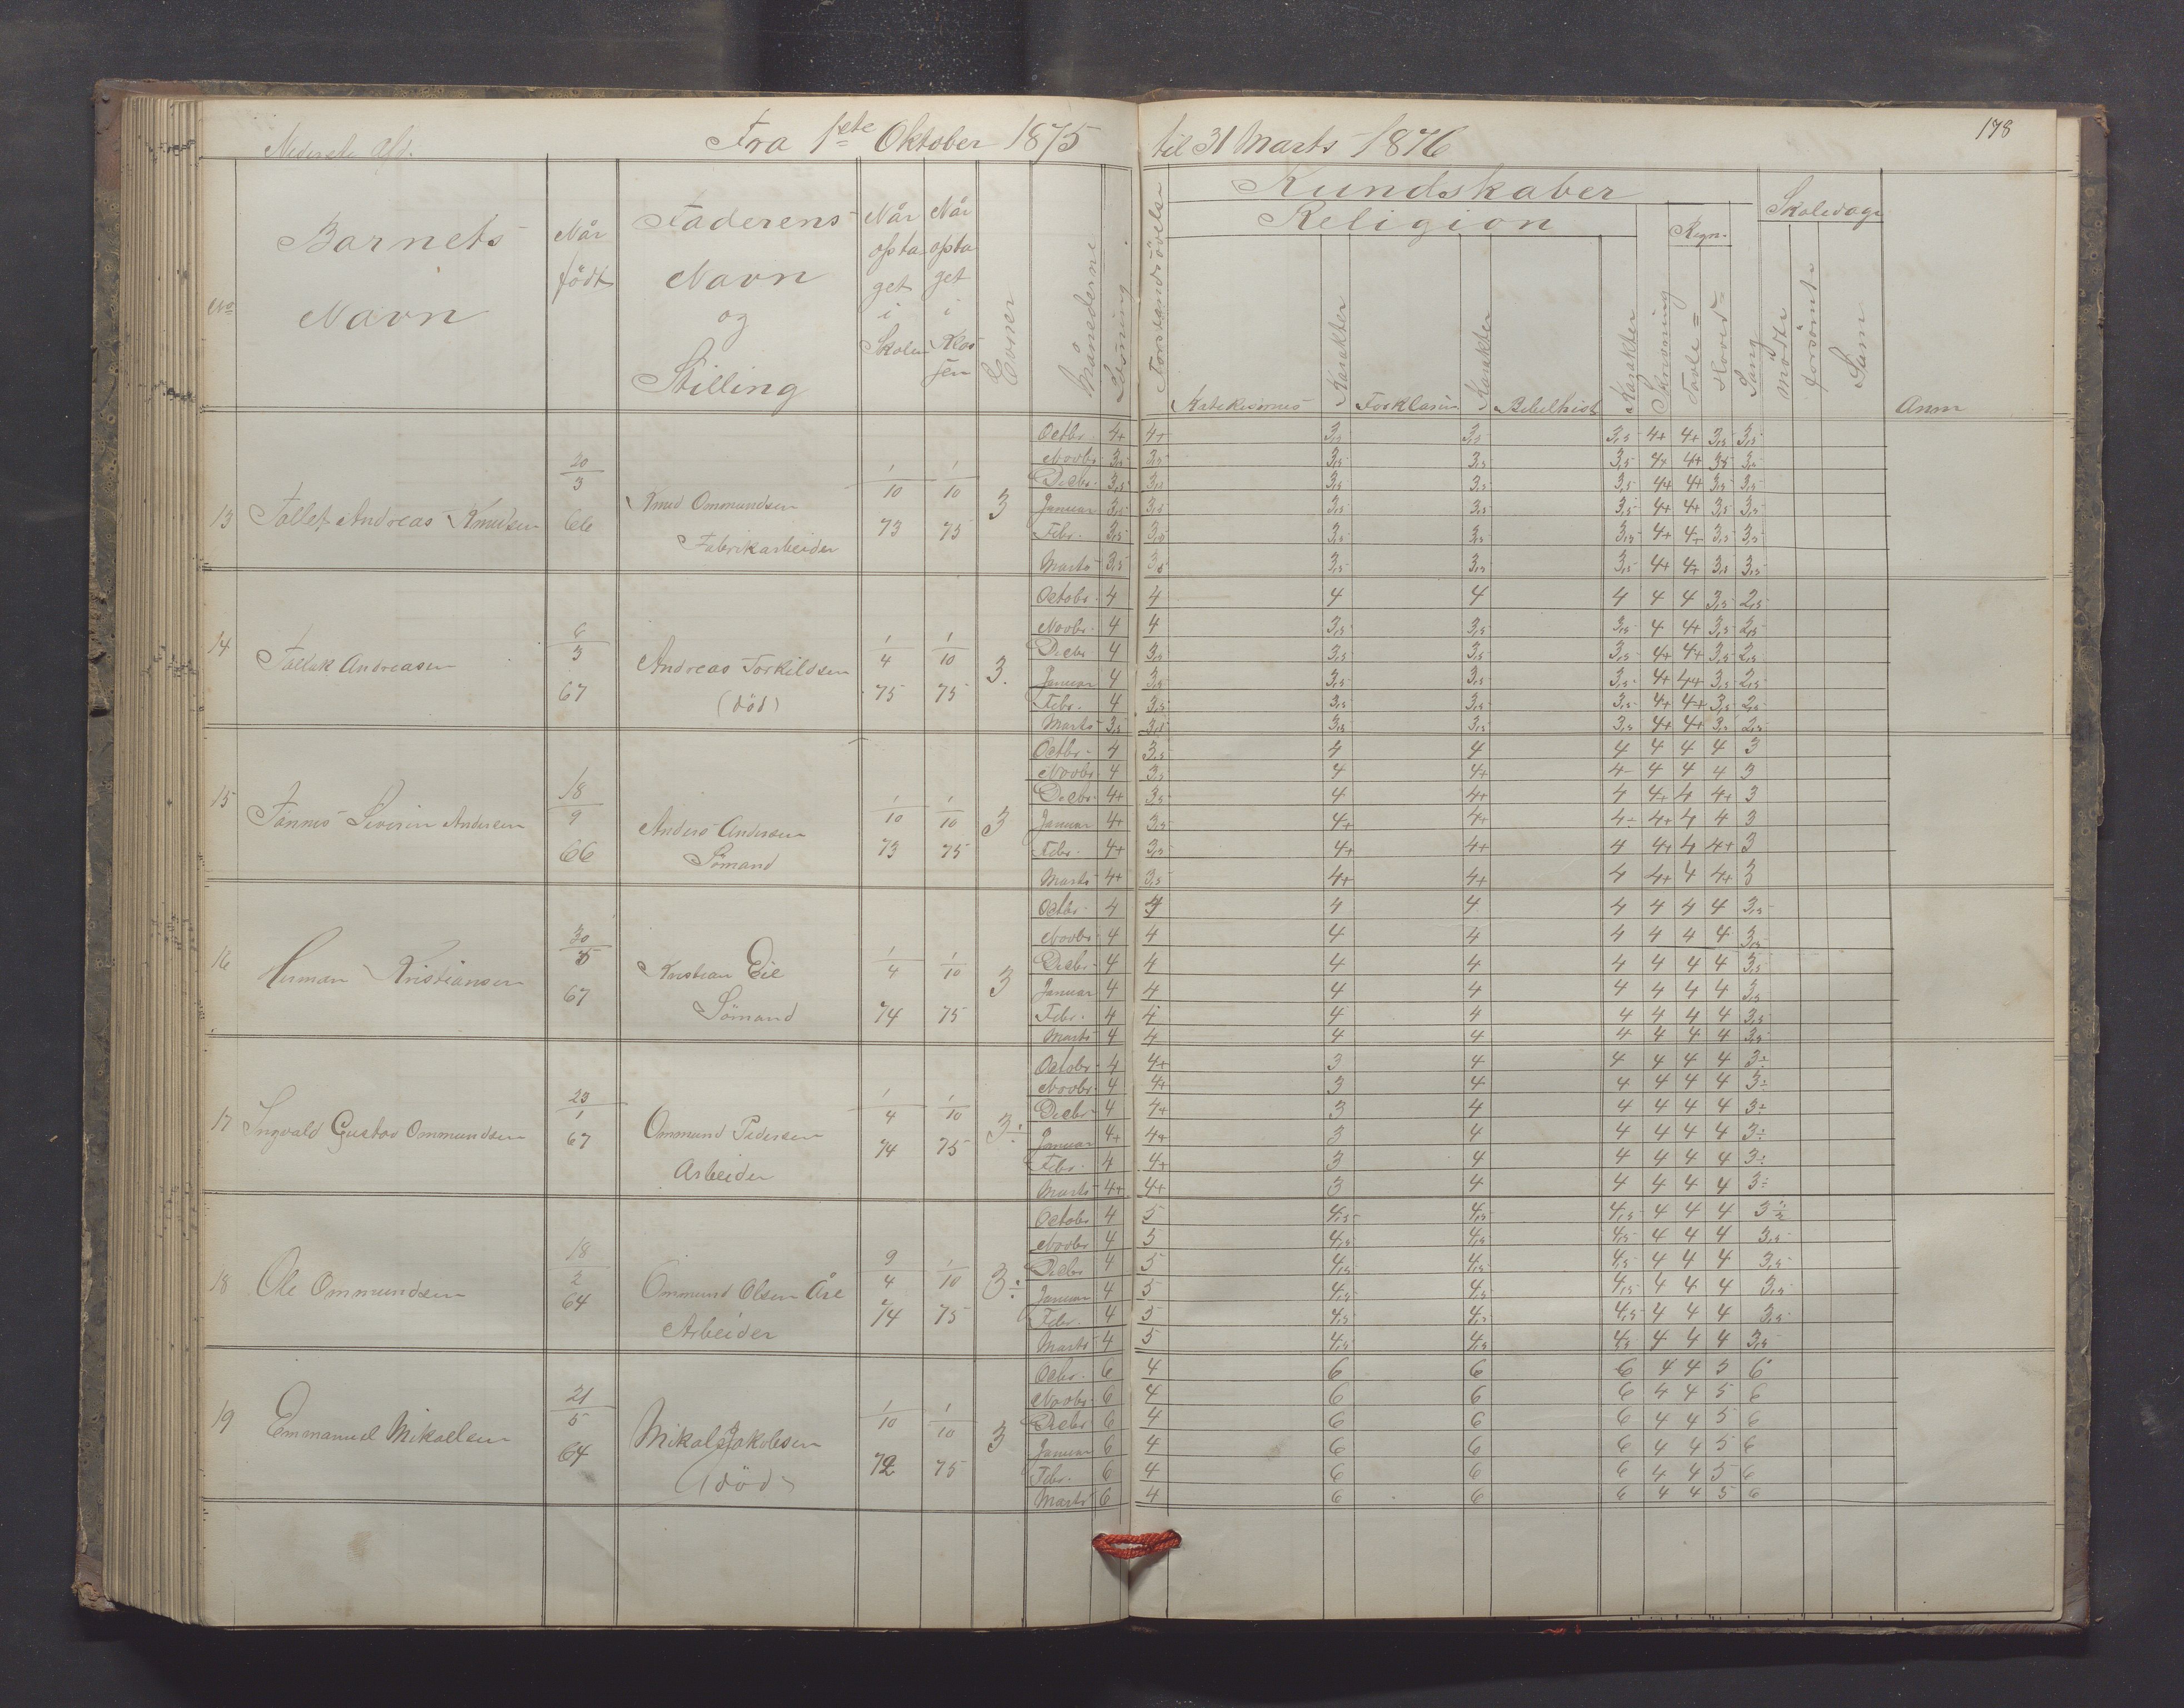 178
Nederste Afd.
Fra 1ste Oktober 1875 til 31 Marts 1876
No
Barnets Navn
Når født
Faderens Navn og Stilling
Når optaget i Skolen
Når optaget i Klassen
Evner
Månederne
Læsning
Forstandsövelse
Kundskaber
Religion
Katekismus
Karakter
Forklaring
Karakter
Bibelhist
Karakter
Skrivning
Regn.
Tavle=
Hoved=
Sang
Skoledage
mödte
forsömte
Sum
Anm
13 Tallef Andreas Knudsen 20/3 66 Knud Ommundsen Fabrikarbeider 1/10 73 1/10 75 3
Octbr. 4+ 4+ 3,5 3,5 3,5 4+ 4+ 3,5 3,5
Novbr 3,5 3,5 3,5 3,5 3,5 4+ 4+ 3,5 3,5
Decbr. 3,5 3,5 3,5 3,5 3,5 4+ 4+ 3,5 3,5
Januar 3,5 3,5 3,5 3,5 3,5 4+ 4+ 3,5 3,5
Febr. 3,5 3,5 3,5 3,5 3,5 4+ 4+ 3,5 3,5
Marts 3,5 3,5 3,5 3,5 3,5 4+ 4+ 3,5 3,5
14 Tallak Andreasen 6/3 67 Andreas Torkildsen (död) 1/4 75 1/10 75 3.
Octobr. 4 4 4 4 4 4 4 3,5 2,5
Novbr. 4 4 3,5 3,5 3,5 4 4+ 3,5 2,5
Decbr 4 3,5 3,5 3,5 3,5 4+ 4+ 3,5 2,5
Januar 4 3,5 3,5 3,5 3,5 4+ 4+ 3,5 2,5
Febr. 4 3,5 3,5 3,5 3,5 4+ 4+ 3,5 2,5
Marts 3,5 3,5 3,5 3,5 3,5 4+ 4+ 3,5 2,5
15 Tönnes Severin Andersen 18/9 66 Anders Andersen Sömand 1/10 73 1/10 75 3
Octbr. 4 3,5 4 4 4 4 4 4 3
Novbr 4 3,5 4 4+ 4- 4 4 4 3
Decbr. 4+ 3,5 4 4+ 4 4+ 4 4+ 3
Januar 4+ 3,5 4+ 4+ 4÷ 4+ 4 4 3
Febr. 4+ 3,5 4+ 4+ 4 4+ 4 4+ 3
Marts 4+ 3,5 4+ 4+ 4 4+ 4 4+ 3
16 Herman Kristiansen 30/5 67 Kristian Eie Sömand 1/4 74 1/10 75 3
Octbr. 4 4 4 4 4 4 4 4 3,5
Novbr 4 4 4 4 4 4 4 4 3,5
Decbr. 4 4 4 4 4 4 4 4 3,5
Januar 4 4 4 4 4 4 4 4 3,5
Febr. 4 4 4 4 4 4 4 4 3,5
Marts 4 4 4 4 4 4 4 4 3,5
17 Ingvald Gustav Ommundsen 23/1 67 Ommund Pedersen Arbeider 1/4 74 1/10 75 3÷
Octobr. 4 4+ 3 4 4 4 4 4 3÷
Novbr. 4 4+ 3 4 4 4 4 4 3÷
Decbr 4 4+ 3 4 4 4 4 4 3÷
Januar 4+ 4+ 3 4 4 4 4 4 3÷
Febr. 4 4+ 3 4 4 4 4 4 3÷
Marts 4+ 4+ 3 4 4 4 4 4 3÷
18 Ole Ommundsen 18/2 64 Ommund Olsen Åse Arbeider 9/4 74 1/10 75 3÷
Octobr 4 5 4,5 4,5 4,5 4 4 4 3½
Novbr 4 5 4,5 4,5 4,5 4 4 4 3,5
Decbr 4 5 4,5 4,5 4,5 4 4 4 3,5
Januar 4 5 4,5 4,5 4,5 4 4 4 3,5
Febr. 4 5 4,5 4,5 4,5 4 4 4 3,5
Marts 4 5 4,5 4,5 4,5 4 4 4 3,5
19 Emmanuel Mikaelsen 21/5 64 Mikal Jakobsen (död) 1/10 72 1/10 75 3
Octbr. 6 4 6 6 6 4 4 5 6
Novbr. 6 4 6 6 6 4 4 5 6
Decbr 6 4 6 6 6 4 4 5 6
Januar 6 4 6 6 6 4 4 5 6
Febr. 6 4 6 6 6 4 4 5 6
Marts 6 4 6 6 6 4 4 5 6